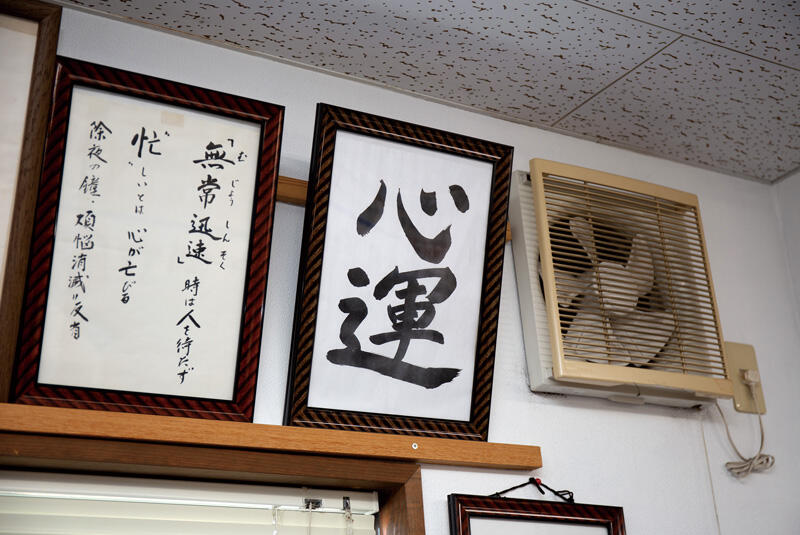 「無常迅速」時は人を待たず
むじょうじんそく
"忙"しいとは心が亡びる
除夜の鐘・煩悩消滅に反省
心運